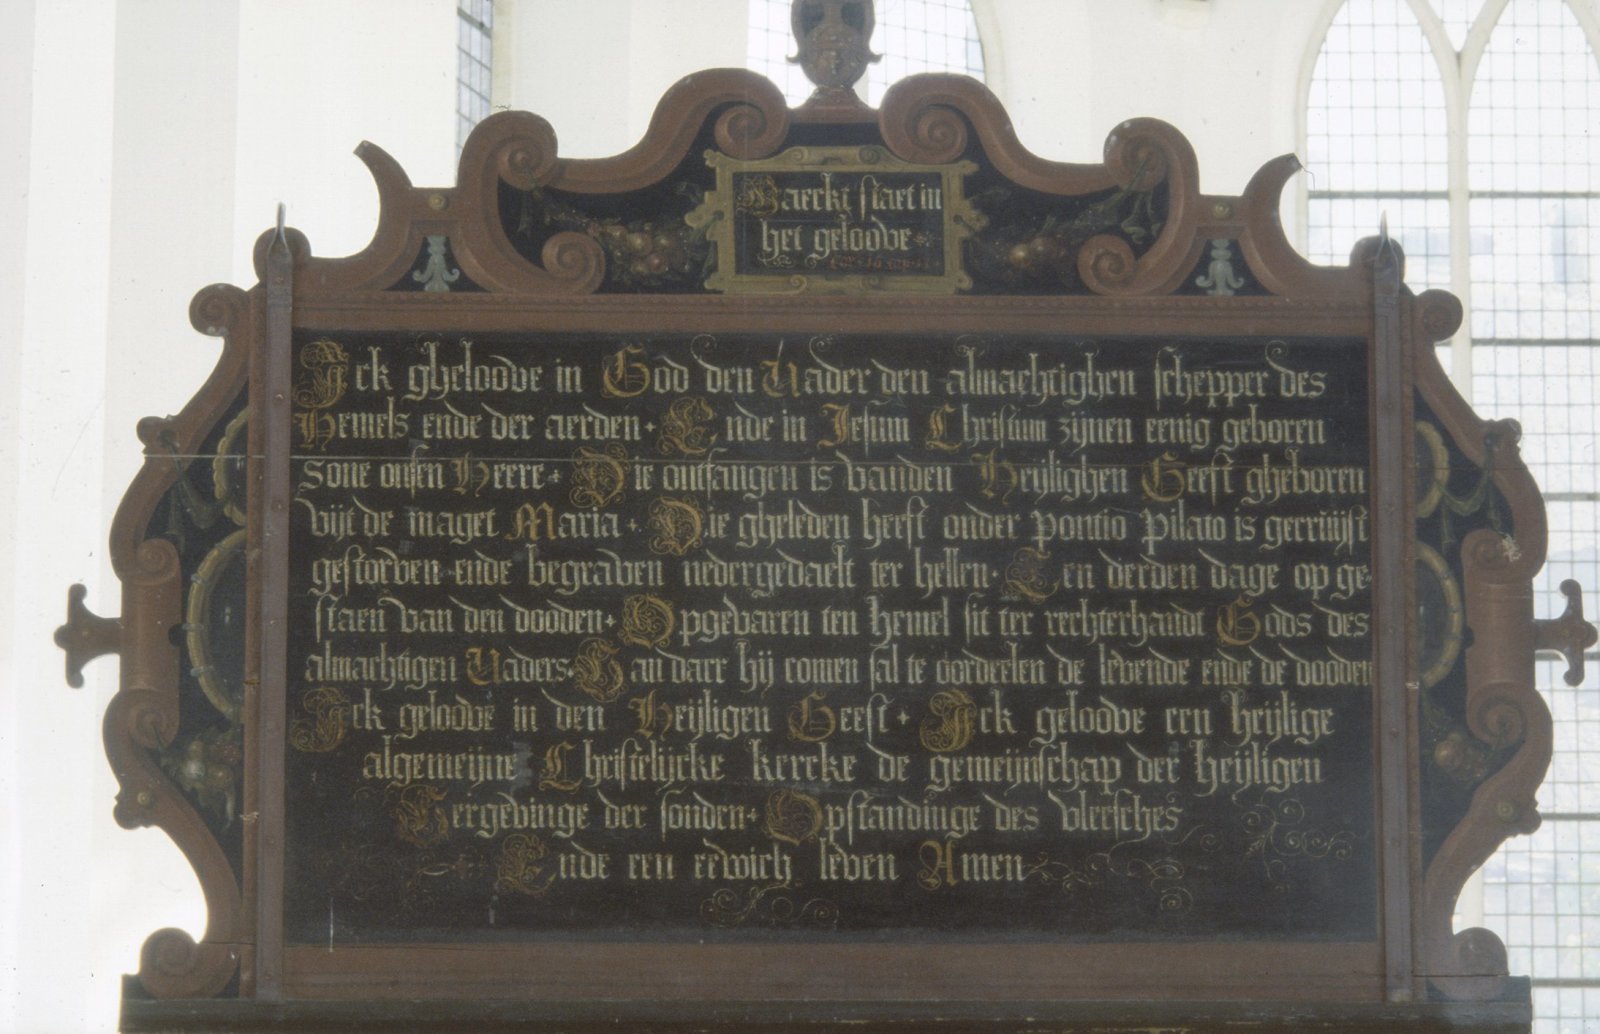 Waeckt staet in
het geloove
Ick gheloove in God den Vader den almachtighen schepper des
Hemels ende der aerden. Ende in Jesum Christum zijnen eenig geboren
sone onsen Heere. Die ontfangen is vanden Heijlighen Geest gheboren
vijt de maget Maria. Die gheleden heeft onder pontio pilato is gecruijst
gestorven ende begraven nedergedaelt ter hellen. Ten derden dage op ge-
staen van den dooden. Opgevaren ten hemel sit ter rechterhandt Gods des
almachtigen Vaders. Van daer hij comen sal te oordeelen de levende ende de dooden
Ick geloove in den Heijligen Geest. Ick geloove een heijlige
algemeijne Christelijcke kercke de gemeijnschap der heijligen
Vergevinge der sonden. Opstandinge des vleesches
Ende een eewich leven Amen